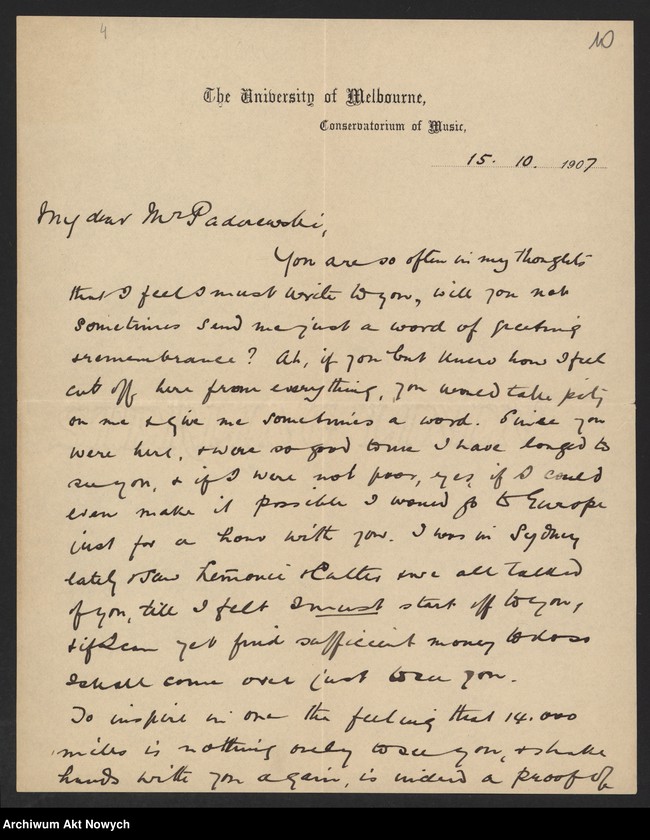 4
10
The University of Melbourne,
Conservatorium of Music,
15. 10. 1907
My dear Mr Paderewski,
You are so often in my thoughts
that I feel I must write to you, will you not
sometimes send me just a word of greeting
& remembrance? Ah, if you but knew how I feel
cut off here from everything, you would take pity
on me & give me sometimes a word. Since you
were here, & were so good to me I have longed to
see you, & if I were not poor, yes, if I could
even make it possible I would go to Europe
just for a hour with you. I was in Sydney
lately & saw & we all talked
of you, till I felt I must start off to you,
& if I can yet find sufficient money to do so
I shall come over just to see you.
To inspire in one the feeling that 14.000
miles is nothing only to see you, & shake
hands with you again, is indeed a proof of
Archiwum Akt Nowych